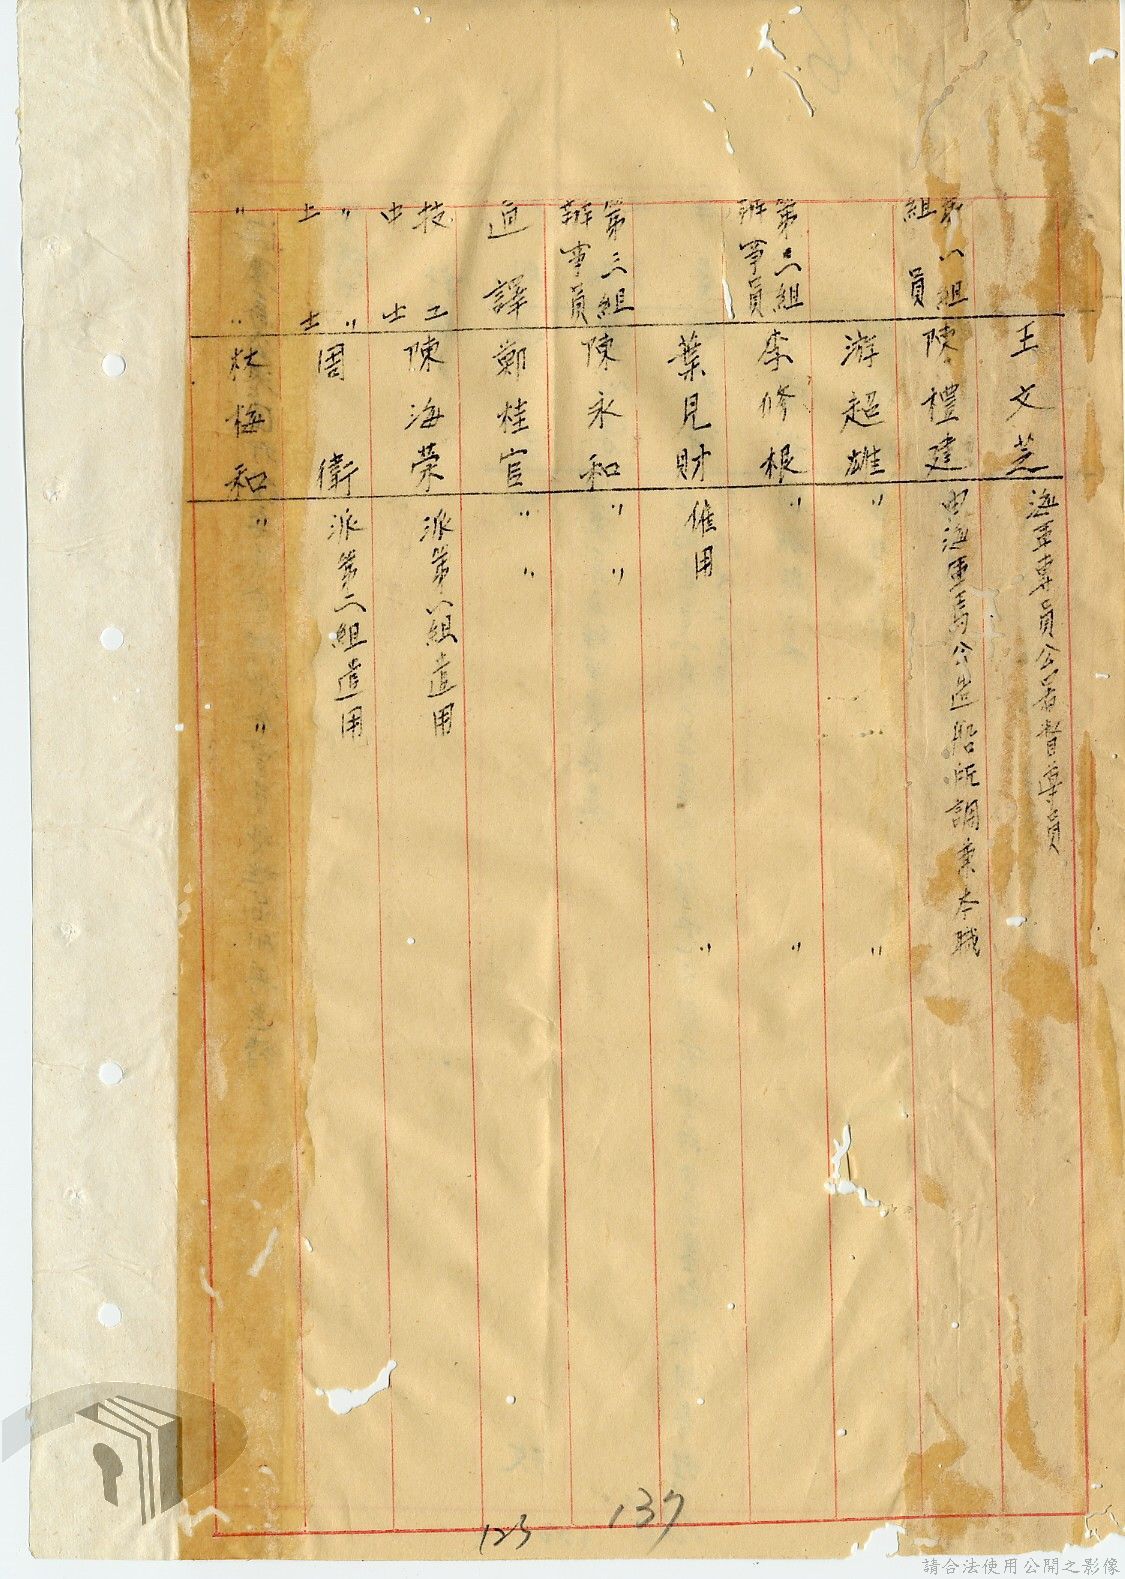 王文芝 海軍專員公署督導員
第一組組員 陳禮建 由海軍馬公造船所調兼本職
游超雄 〃 〃
第二組辦事員 李修根 〃 〃
葉見財 僱用 〃
第三組辦事員 陳永和 〃 〃
通譯 鄭桂官 〃 〃
技工中士 陳海榮 派第一組遣用
〃 〃 上士 周衛 派第二組遣用
〃 〃 林梅和 〃 〃
137
123
請合法使用公開之影像